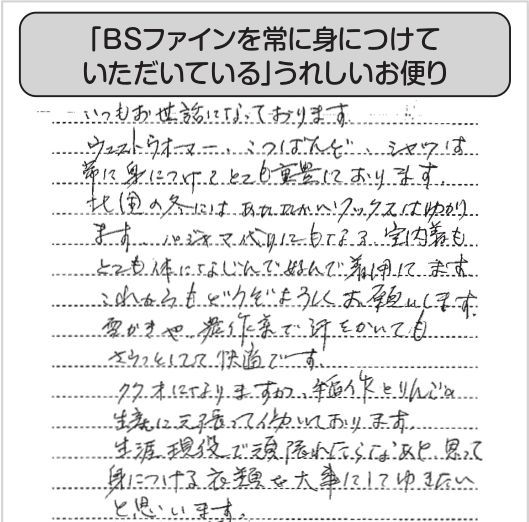 「BSファインを常に身につけて
いただいている」うれしいお便り
いつもお世話になっております。
ウエストウオーマー、こつばんぞ、シャツは
常に身につけてとても重宝しております。
北国の冬にはあたたかいソックスはゆかり
ます。パジャマ代りにもなる室内着も
とても体になじんで好んで着用してます
これからもどうぞよろしくお願いします
雪かきや、農作業で汗をかいても
さらっとしてて快適です。
クオになりますが、稲作とりんごの
生産に元張って働いております。
生涯現役で頑張れたらなあと、思って
身につける衣類を大事にしてゆきたい
と思います。